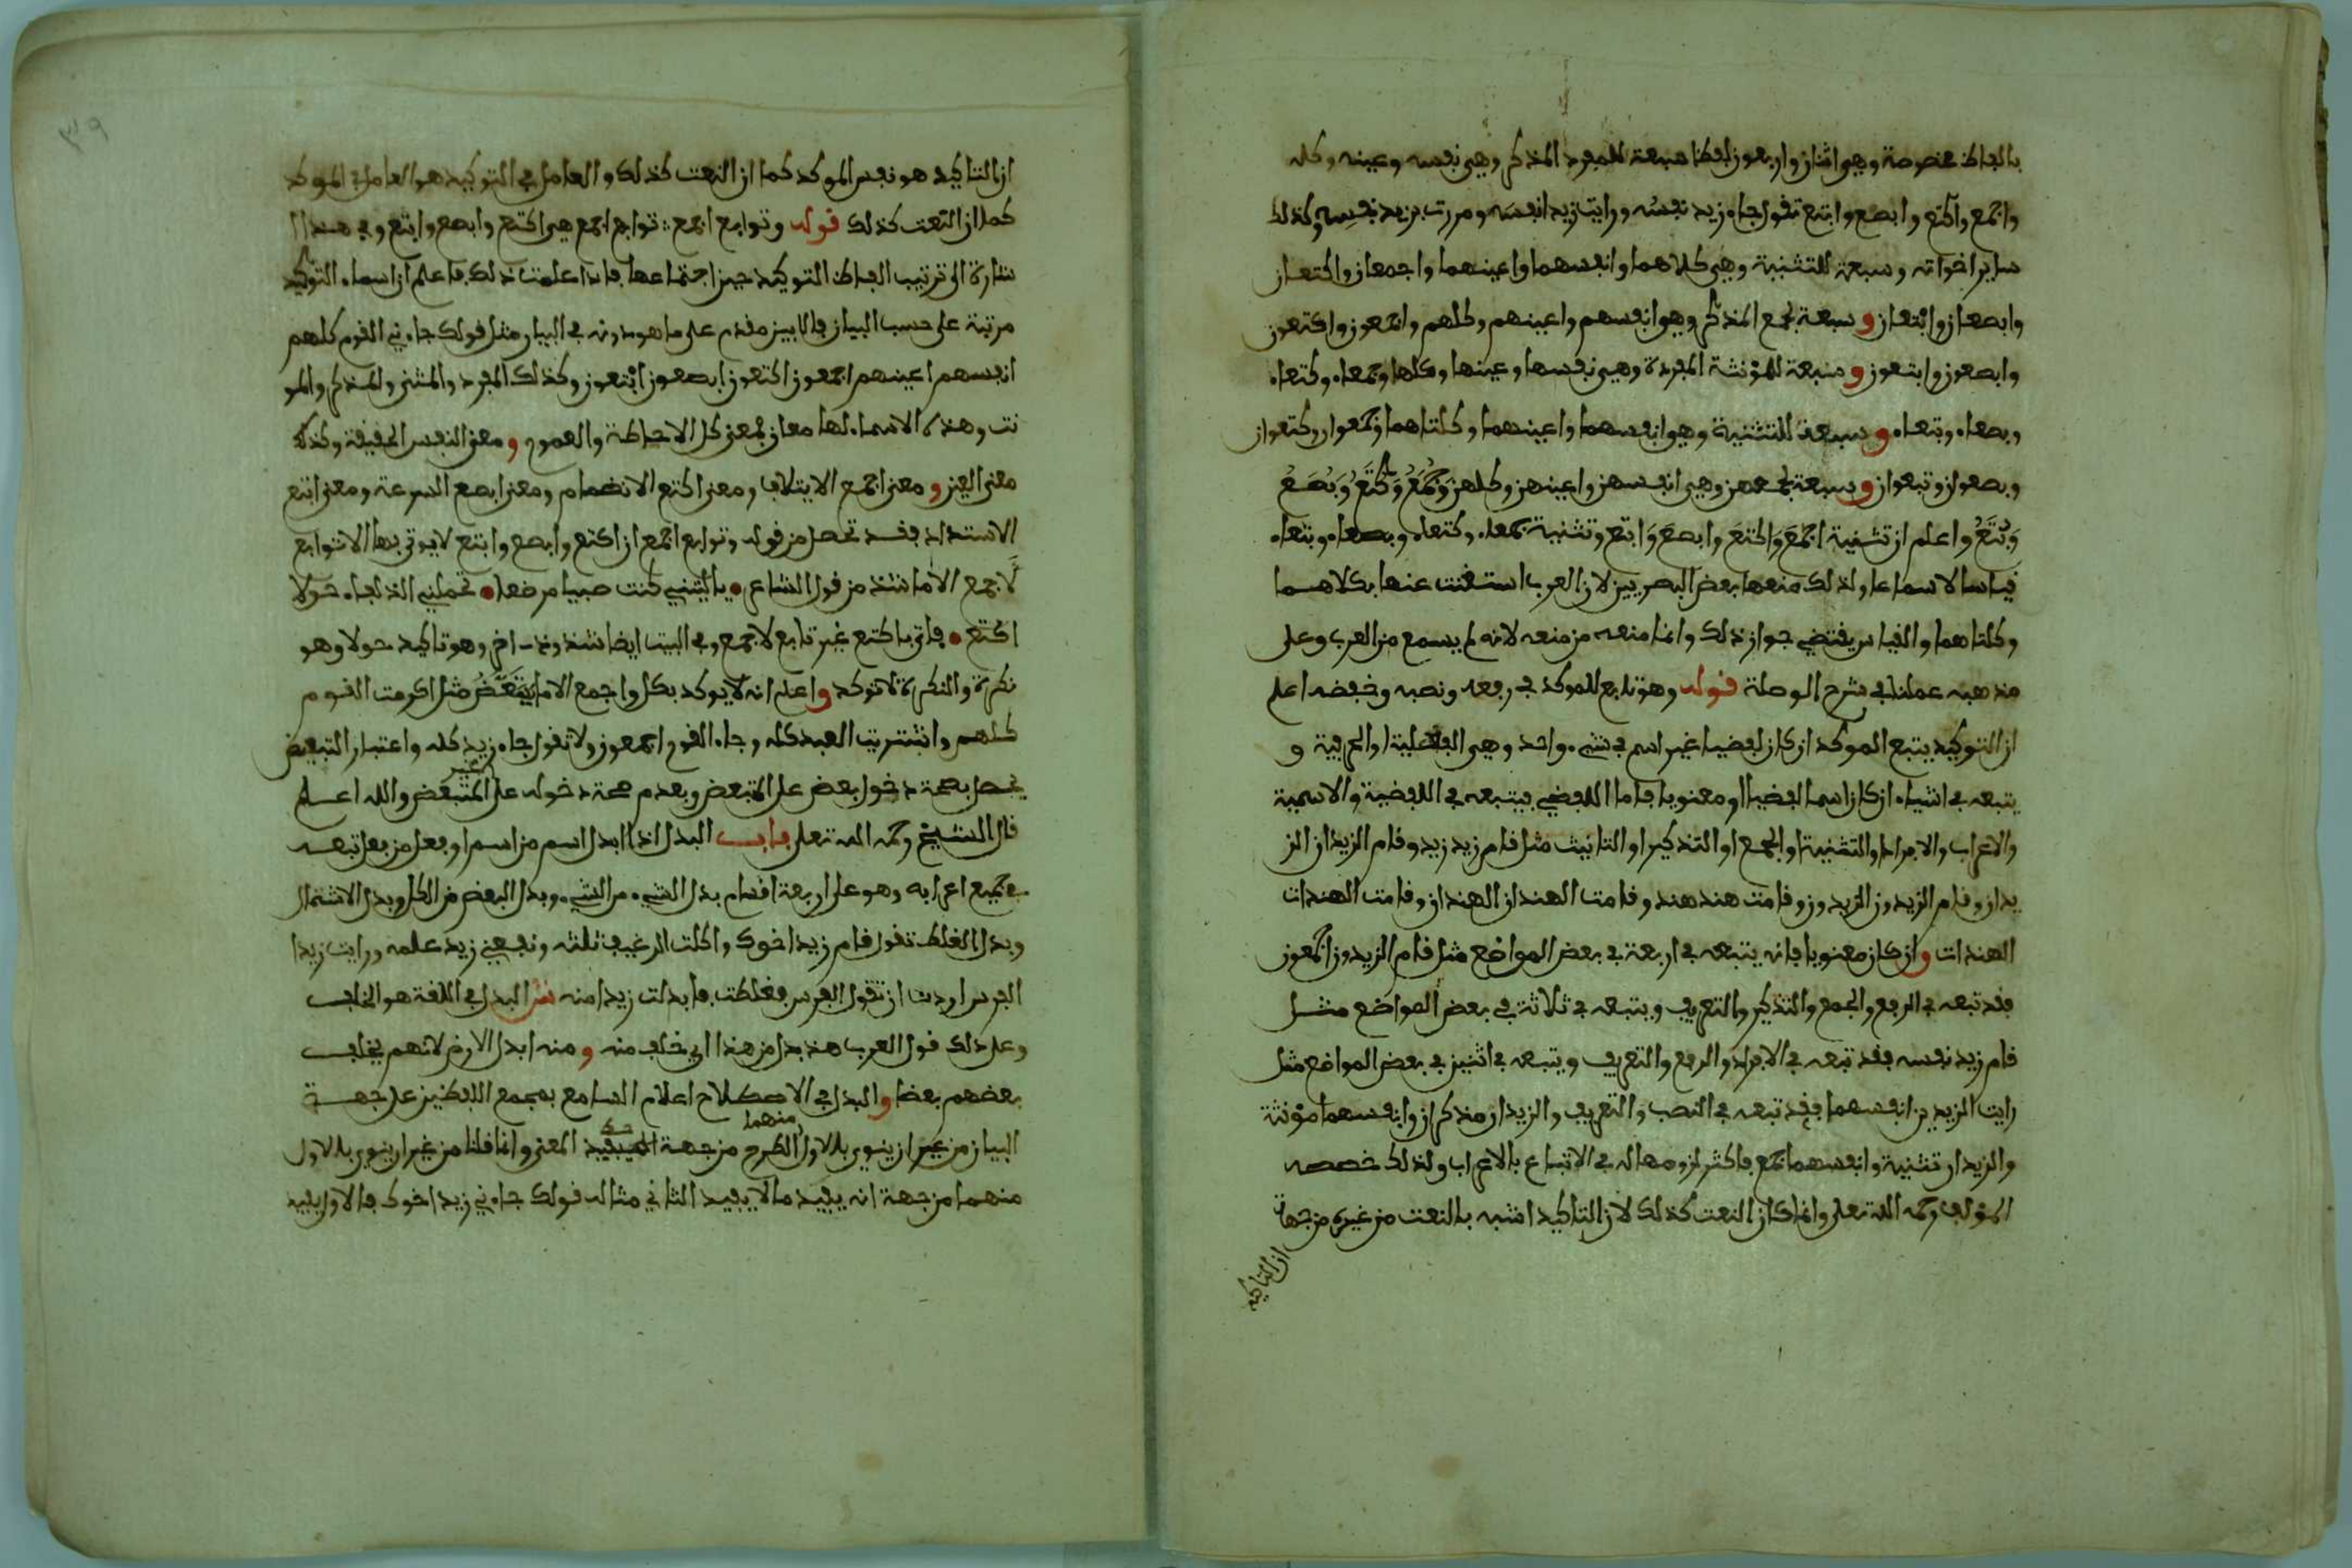 بالفاظ مخصوصة وهي اثنان واربعون لفظا سبعة للمفرد المذكر وهي نفسه وعينه وكله
واجمع واكتع وابصع وابتع تقول جاء زيد نفسُه ورايت زيدا نفسَه ومررت بزيد نفسِه وكذلك
ساير اخواته وسبعة للتثنية وهي كلاهما وانفسهما واعينهما واجمعان واكتعان
وابصعان وابتعان وسبعة لجمع المذكر وهي انفسهم واعينهم وكلهم واجمعون واكتعون
وابصعون وابتعون وسبعة للمؤنثة المفردة وهي نفسها وعينها وكلها وجمعاء وكتعاء
وبصعاء وبتعاء وسبعة للتثنية وهي انفسهما واعينهما وكلتاهما وجمعوان وكتعوان
وبصعوان وبتعوان وسبعة لجمعهن وهي انفسهن واعينهن وكلهن وَجُمَعُ وَكُتَعُ وَبُصَعُ
وَبُتَعُ واعلم ان تثنية اجمَعَ وَاكتعَ وابصعَ وَابتع وتثنية جمعاء وكتعاء وبصعاء وبتعاء
قياسا لا سماعا ولذلك منعها بعض البصريين لان العرب استغنت عنها بكلاهما
وكلتاهما والقياس يقتضي جواز ذلك وانما منعه من منعه لانه لم يسمع من العرب وعلى
مذهبه عملنا في شرح الوصلة قوله وهو تابع للموكد في رفعه ونصبه وخفضه اعلم
ان التوكيد يتبع الموكد ان كان لفضيا غير اسم في شيء واحد وهي الفعلية او الحرفية و
يتبعه في اشياء ان كان اسما لفضيا او معنويا فاما اللفضي فيتبعه في اللفضية والاسمية
والاعراب والافراد او التثنية او الجمع او التذكير او التانيث مثل قام زيد زيد وقام الزيدان الز
يدان وقام الزيدون الزيدون وقامت هند هند وقامت الهندان الهندان وقامت الهندات
الهندات وان كان معنويا فانه يتبعه في اربعة في بعض المواضع مثل قام الزيدون اجمعون
فقد تبعه في الرفع والجمع والتذكير والتعريف ويتبعه في ثلاثة في بعض المواضع مثل
قام زيد نفسه فقد تبعه في الافراد والرفع والتعريف ويتبعه في اثنين في بعض المواضع مثل
رايت الزيدين انفسهما فقد تبعه في النصب والتعريف والزيدان مذكران وانفسهما مؤنثة
والزيدان تثنية وانفسهما جمع فاكثر لزومها له في الاتباع بالاعراب ولذلك خصصه
المؤلف رحمه الله تعلى وانما كان النعت كذلك لان التاكيد اشبه بالنعت من غيره من جهة
ان التاكيد
ان التاكيد هو نفس الموكد كما ان النعت كذلك والعامل في التوكيد هو العامل في الموكد
كما ان النعت كذلك قوله وتوابع اجمع توابع اجمع هي اكتع وابصع وابتع وفي هذا ا
شارة الى ترتيب الفاظ التوكيد حين اجتماعها فاذا علمت ذلك فاعلم ان اسماء التوكيد
مرتبة على حسب البيان فالابين مقدم على ما هو دونه في البيان مثل قولك جاءني القوم كلهم
انفسهم اعينهم اجمعون اكتعون ابصعون ابتعون وكذلك المفرد والمثنى والمذكر والمو
نث وهذه الاسماء لها معان فمعنى كل الاحاطة والعموم ومعنى النفس الحقيقة وكذلك
معنى العين ومعنى اجمع الايتلاف ومعنى اكتع الانضمام ومعنى ابصع السرعة ومعنى ابتع
الاستداد فقد تحصل من قوله وتوابع اجمع ان اكتع وابصع وابتع لا يوتى بها الا توابع
لاجمع الا ما شذ من قول الشاعر يا ليتني كنت صبيا مرضعا تحملني الذلفاء حَولا
اكتع فاتى باكتع غير تابع لاجمع وفي البيت ايضا شذوذ اخر وهو تاكيد حولا وهو
نكرة والنكرة لا توكد واعلم انه لا يوكد بكل واجمع الا ما يتبَعَّضُ مثل اكرمت القوم
كلهم واشتريت العبد كله وجاء القوم اجمعون ولا تقول جاء زيد كله واعتبار التبعيض
يحصل بصحة دخول بعض على المتبعض وبعدم صحة دخوله على غير المتبعض والله اعلم
قال الشيخ رحمه الله تعلى باب البدل اذا ابدل اسم من اسم او فعل من فعل تبعه
في جميع اعرابه وهو على اربعة اقسام بدل الشيء من الشيء وبدل البعض من الكل وبدل الاشتمال
وبدل الغلط تقول قام زيد اخوك واكلت الرغيف ثلثه ونفعني زيد علمه ورايت زيدا
الفرس اردت ان تقول الفرس فغلطت فابدلت زيدا منه ش البدل في اللغة هو الخلف
وعلى ذلك قول العرب هذ بدل من هذا اي خلف منه ومنه ابدل الارض لانهم يخلف
بعضهم بعضا والبدل في الاصطلاح اعلام السامع بمجمع اللفظين على جهة
البيان من غير ان ينوى بالاول منهما الطرح من جهة المعنى وانما قلنا من غير ان ينوى بالاول
منهما من جهة انه يفيد ما لا يفيد الثاني مثاله قولك جاءني زيد اخوك فالاول يفيد